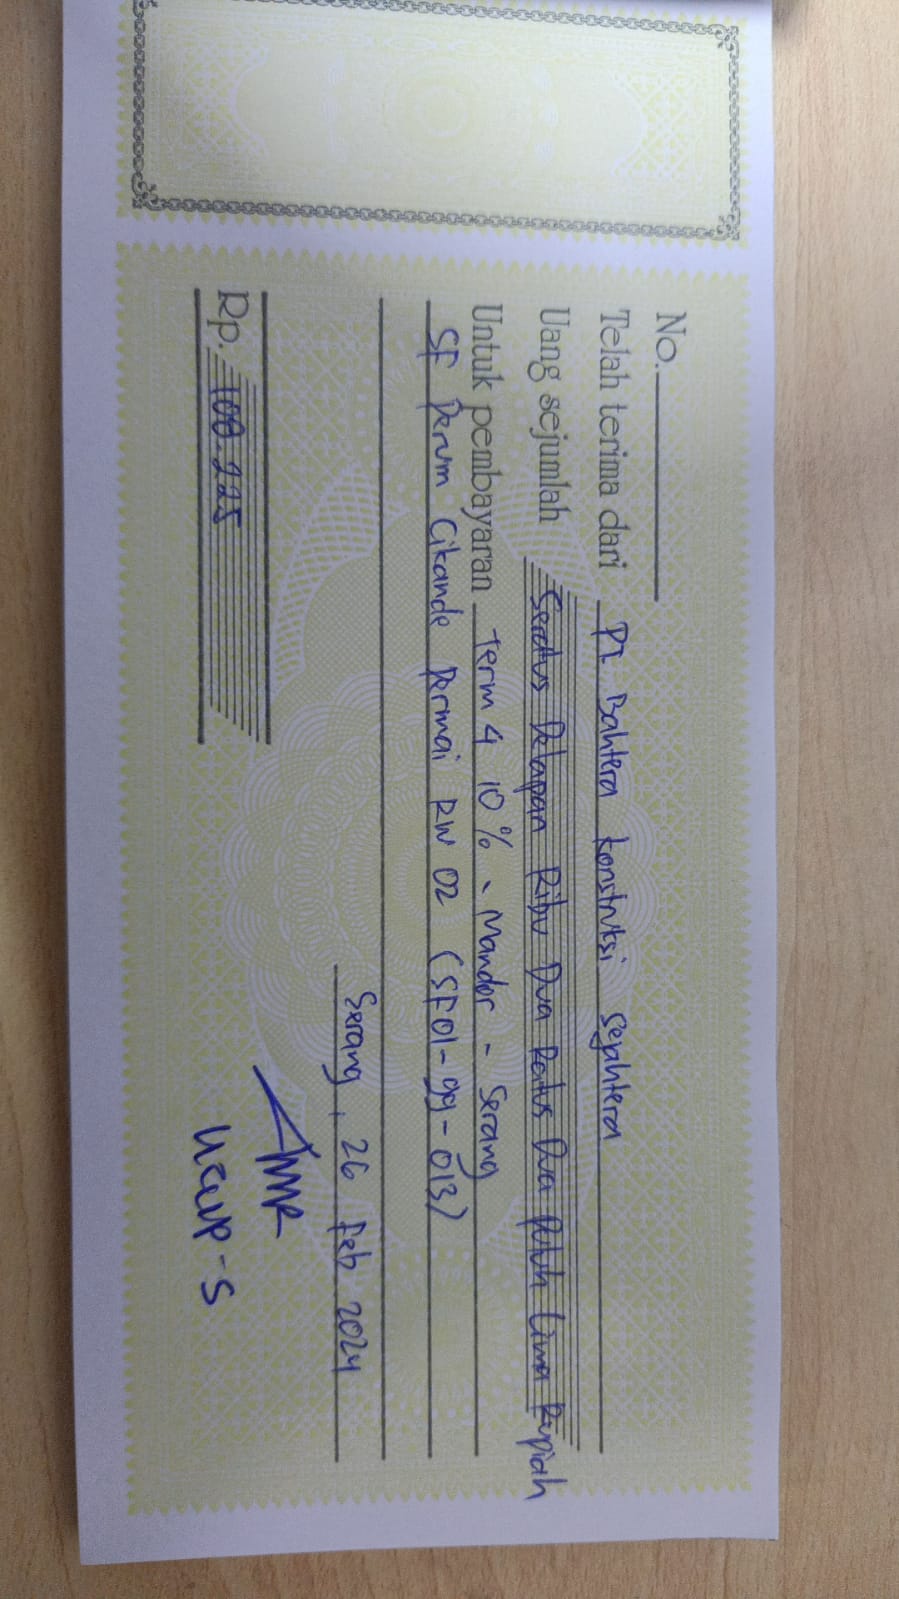 No.
Telah terima dari PT Bahtera Konstruksi Sejahtera
Uang sejumlah Seratus Delapan Ribu Dua Ratus Dua Puluh Lima Rupiah
Untuk pembayaran Term 4 10% - Mandor - Serang
SF Perum Cikande Permai RW 02 (SF01-99-013)
Serang, 26 Feb 2024
Rp. 108.225
Ucup-S